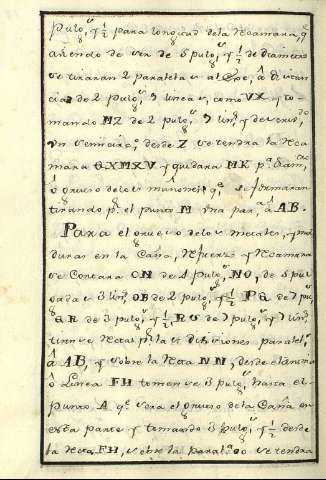 pulg.s y 1/2 para longitud de la Recamara, q.e
aviendo de ser de 5 pulg.s y 1/2 de diametro
se tiraran 2 paralelas al Exe, â distan
cia de 2 pulg.s 9 lineas, como VX y to-
mando MZ de 2 pulg.s 9 lin.s y describ.do
un semicirc.o desde Z se tendra la Rea
mara GXMXV y quedara MK p.a diam.tro
ô grueso de los muñones q.e se formaran
tirando p.r el punto M una par.a â AB.
Para el grueso de los metales, y mol
duras en la Caña, Refuerzo y Recamara
se Contara ON de 1 pulg. NO, de 5 pul
gadas 3 lin.s OB de 2 pulg.s y 1/2 PQ de 7 pul.s
QR de 3 pulg.s y 1/2, RS de 7 pulg.s y 7 lin.s
tirense Rectas p.r las divisiones paralel.s
â AB, y sobre la Recta NN, desde el
ô Linea FH tomense 3 pulg.s hasta el
punto A q.e sera el grueso de la Caña en
esta parte y tomando 3 pulg.s y 1/2 desde
la Recta FH, sobre la paral.a se tendra